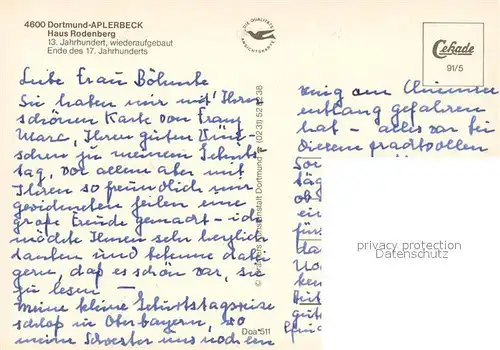 4600 Dortmund-APLERBECK
Haus Rodenberg
13. Jahrhundert, wiederaufgebaut
Ende des 17. Jahrhunderts
DIE QUALITÄTS
ANSICHTSKARTE
Cekade
91/5
Liebe Frau Böhmke
Sie haben mir mit Ihrer
schönen Karte von Franz
Marc, Ihren guten Wün-
schen zu meinem Geburts-
tag, vor allem aber mit
Ihren so freundlich mir
gewidmeten Zeilen eine
große Freude gemacht - ich
möchte Ihnen sehr herzlich
danken und bekenne dabei
gern, daß es schön war, sie
zu lesen -
Meine kleine Geburtstagsreise
schloß in Oberbayern, wo
meine Schwester uns noch ein
wenig am Chiemsee
entlang gefahren
hat - alles war bei
diesem prachtvollen
Kunstanstalt Dortmund (0231) 52 52 38
Doa*511
privacy protection
Datenschutz